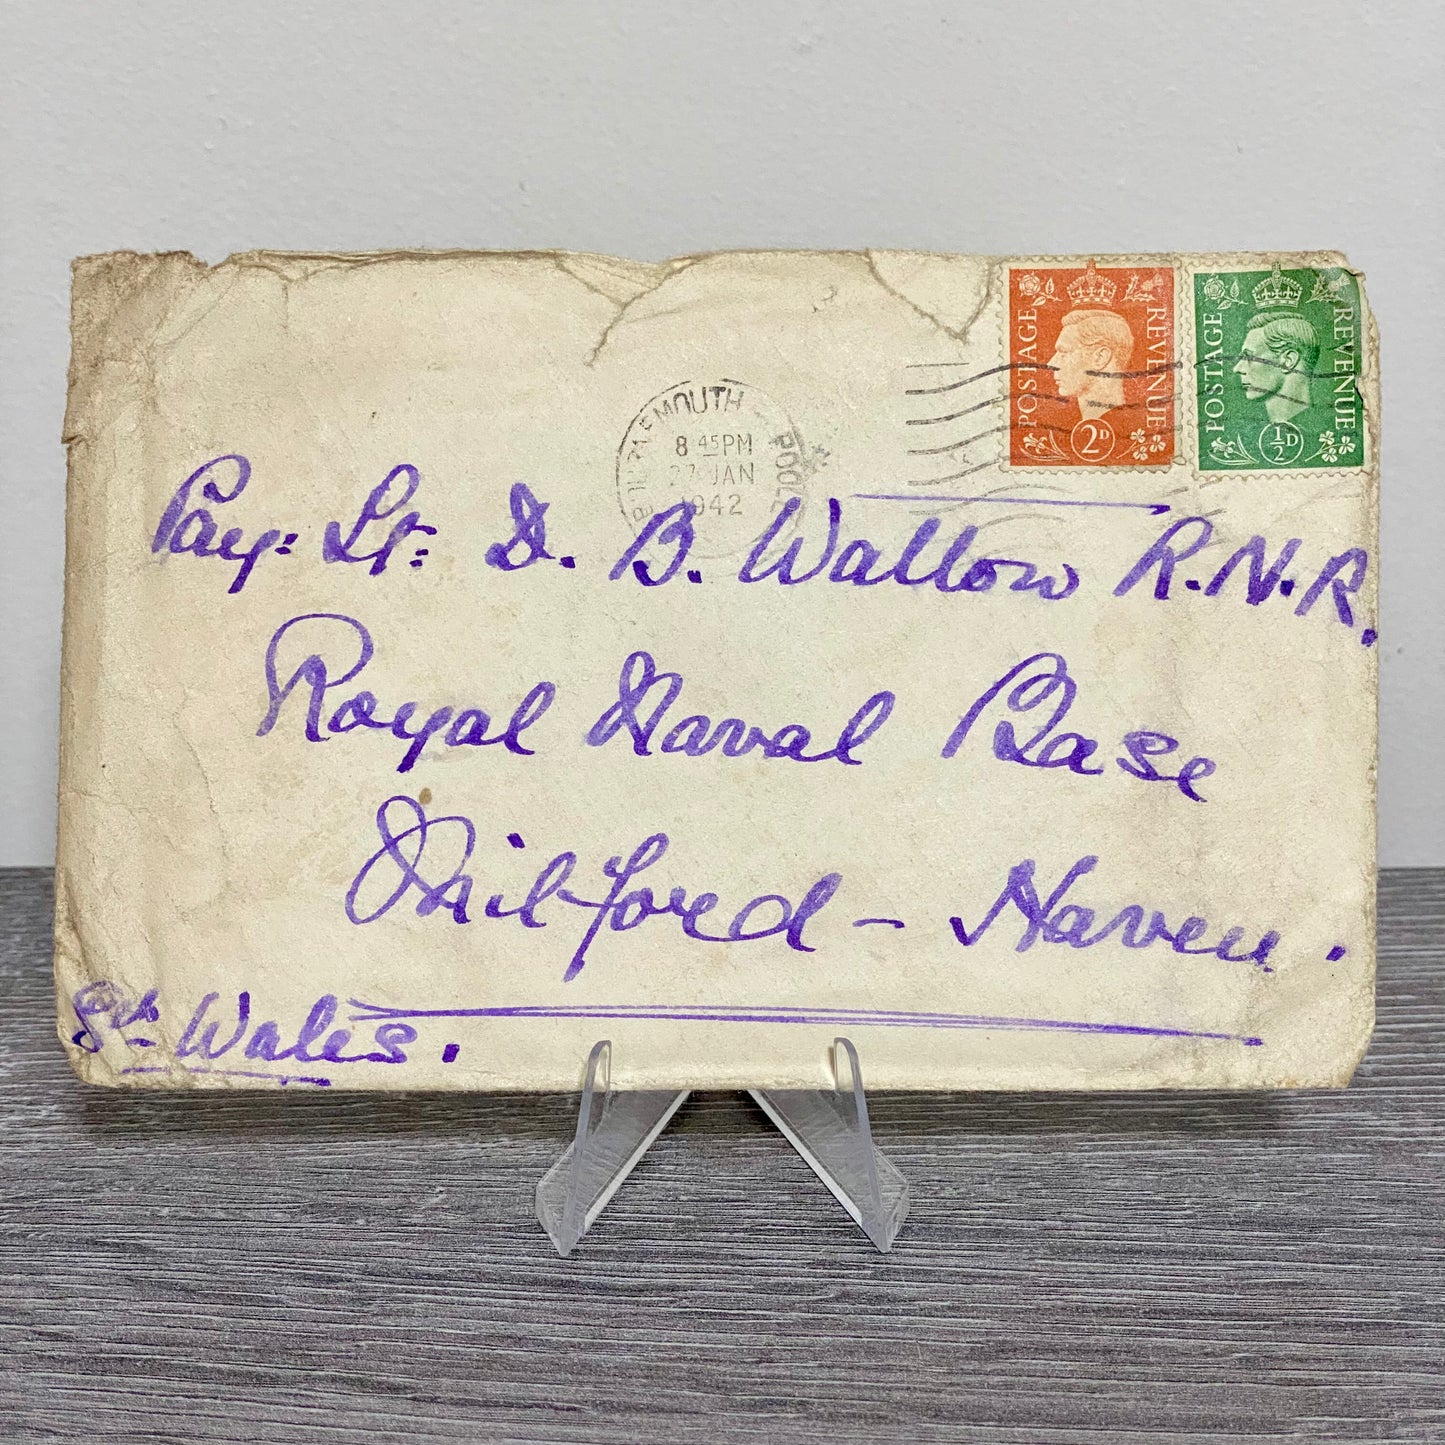 POSTAGE REVENUE
2D
POSTAGE REVENUE
½D
BOURNEMOUTH POOLE
8 45PM
27 JAN
1942
Pay: Lt: D. B. Wallow R.N.R.
Royal Naval Base
Milford - Haven.
Sth Wales.